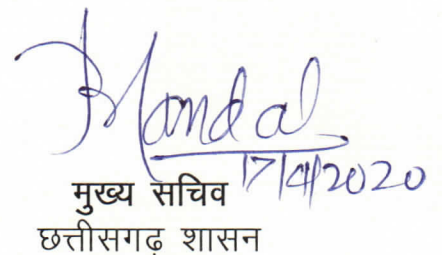 Mandal
17/4/2020
मुख्य सचिव
छत्तीसगढ़ शासन